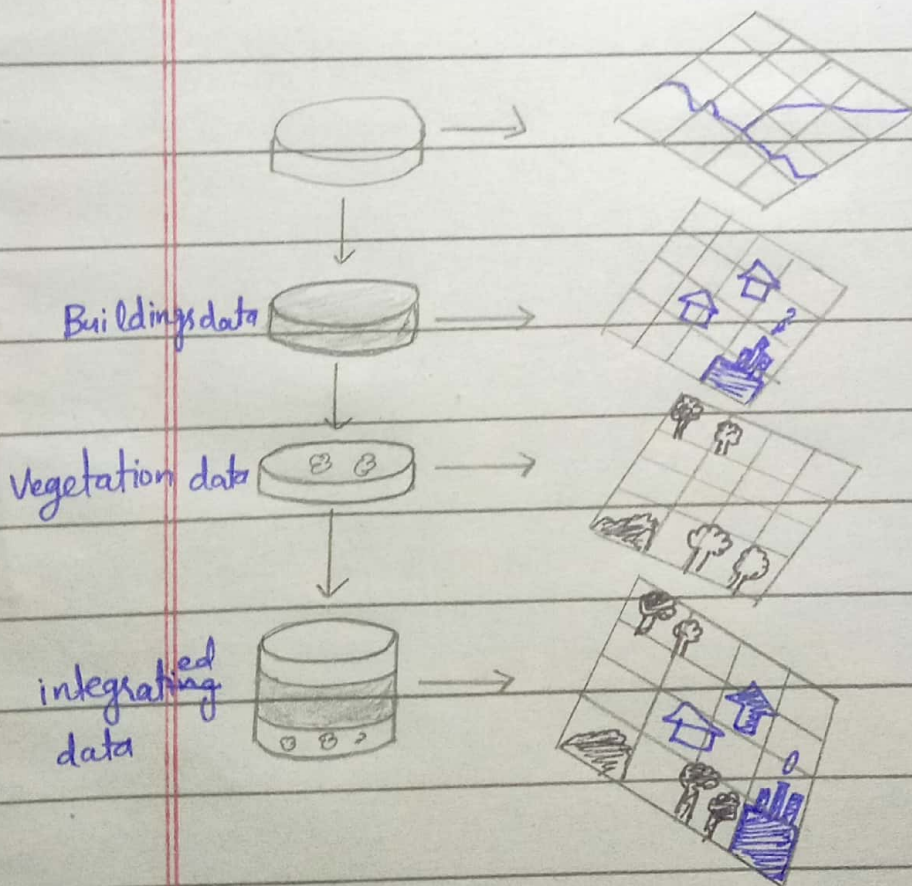 Buildings data
Vegetation data
integrated
data